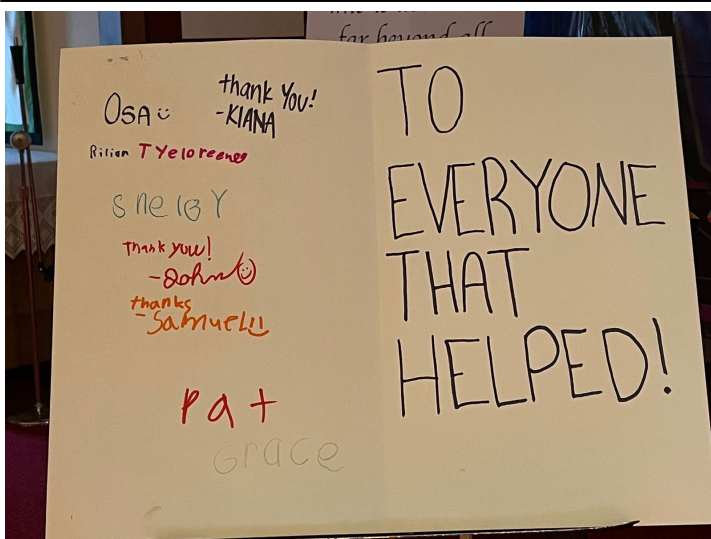 far beyond all
OSA
thank You!
-KIANA
Rilian TYeloreeneg
SHelBY
Thank you!
-John
thanks
-Samuel
Pat
Grace
TO
EVERYONE
THAT
HELPED!